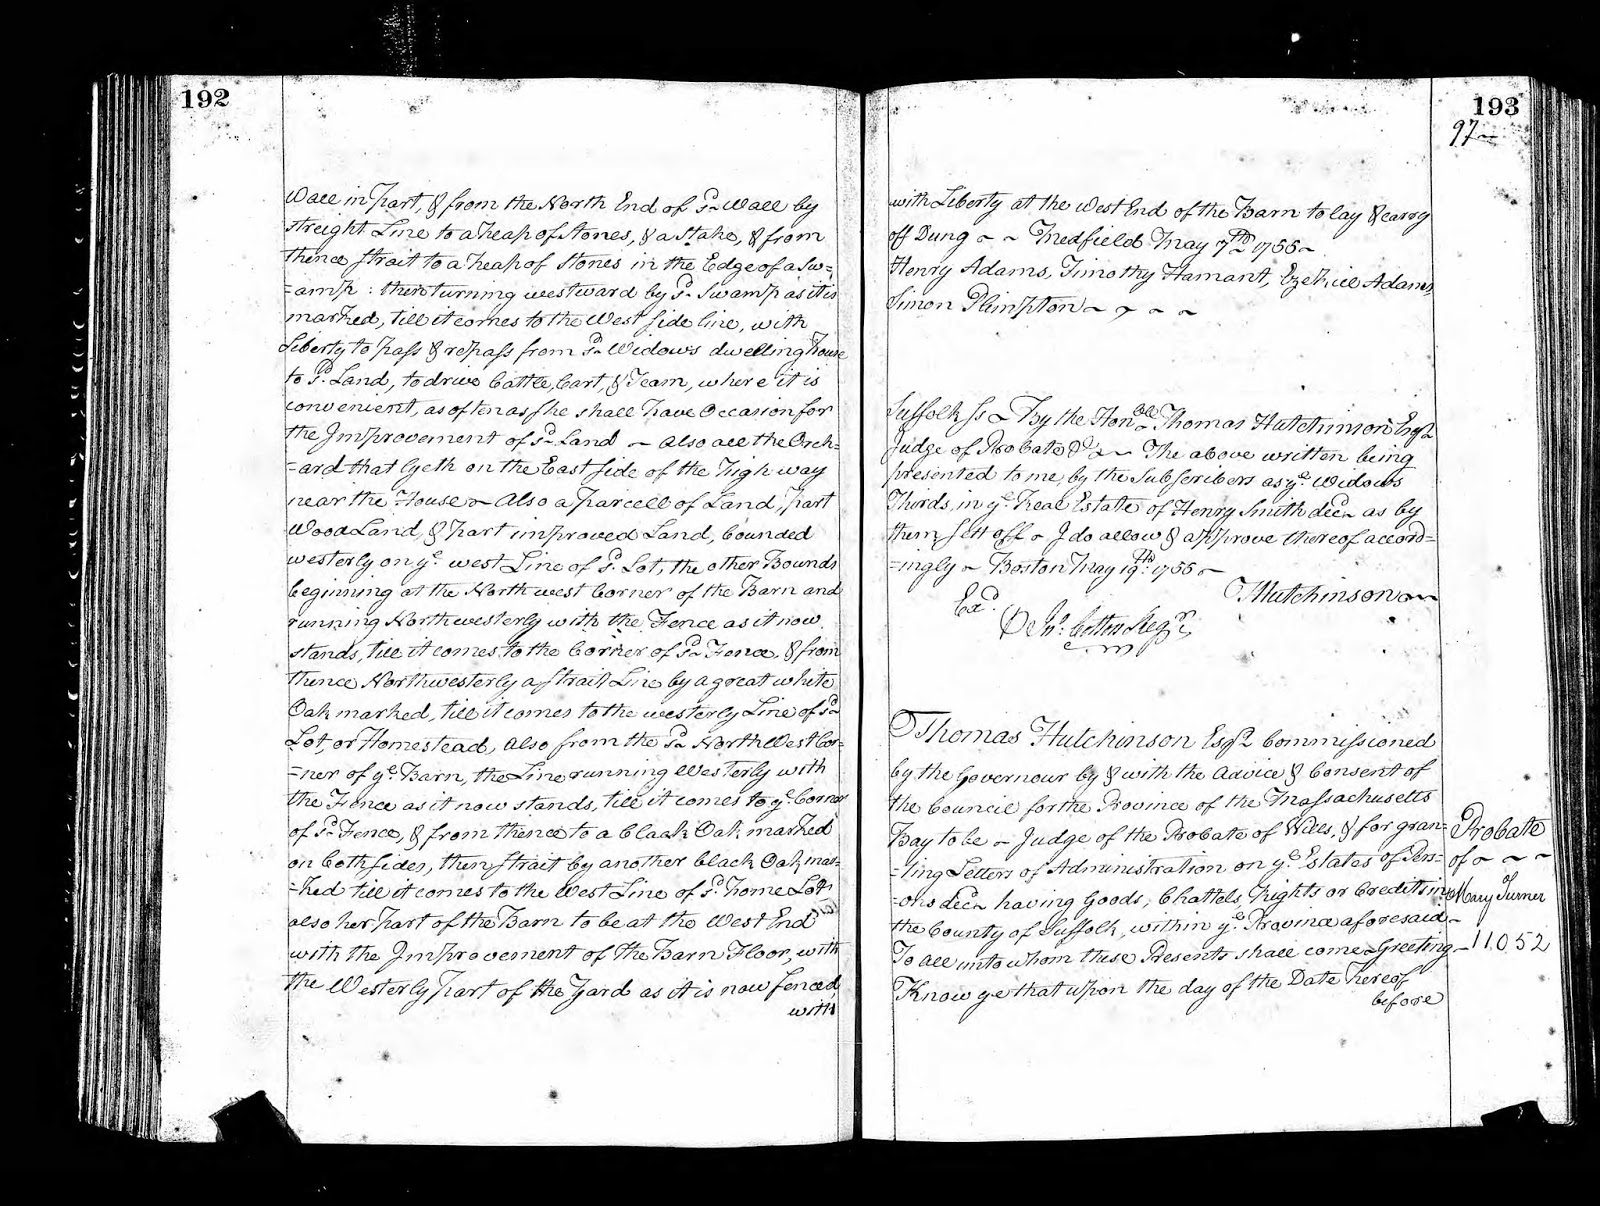 192
Wall in part, & from the North End of sd Wall by
streight Line to a heap of Stones, & a Stake, & from
thence strait to a heap of Stones in the Edge of a Sw=
=amp: then turning westward by sd Swamp as it is
marked, till it comes to the West side line, with
Liberty to pass & repass from sd Widows dwelling house
to sd Land, to drive Cattle, Cart, & Team, where it is
convenient, as often as she shall have Occasion for
the Improvement of sd Land ~ also all the Orch=
=ard that lyeth on the East side of the high way
near the House ~ Also a parcell of Land, part
Wood Land, & part improved Land, bounded
westerly on ye west Line of sd Lot, the other Bounds
beginning at the Northwest Corner of the Barn and
running Northwesterly with the Fence as it now
stands, till it comes to the Corner of sd Fence, & from
thence Northwesterly a strait Line by a great white
Oak marked, till it comes to the westerly Line of sd
Lot, or Homestead, Also from the sd North West Cor=
=ner of ye Barn, the Line running Westerly with
the Fence as it now stands, till it comes to ye Corner
of sd Fence, & from thence to a black Oak marked
on both sides, then strait by another black Oak mar=
=ked till it comes to the West Line of sd home Lot
also her part of the Barn to be at the West End
with the Improvement of the Barn Floor, with
the Westerly part of the Yard as it is now fenced,
with
193
97
with Liberty at the West End of the Barn to lay & carry
off Dung ~ ~ Medfield May 7th 1755 ~
Henry Adams, Timothy Hamant, Ezekiel Adams,
Simon Plimpton ~ ~ ~ ~
Suffolk ss ~ By the Honble Thomas Hutchinson Esqr
Judge of Probate &c ~ The above written being
presented to me, by the Subscribers as ye Widows
Thirds, in ye Real Estate of Henry Smith decd as by
them sett off ~ I do allow & approve thereof accord=
=ingly ~ Boston May 19th 1755 ~
T Hutchinson
Exd
Jno Cotton Regr
Thomas Hutchinson Esqr Commissioned
by the Governour by & with the advice & Consent of
the Council for the Province of the Massachusetts
Bay to be ~ Judge of the Probate of Wills, & for gran=
=ting Letters of Administration on ye Estates of Pers=
=ons decd having Goods, Chattels, Rights or Credits in
the County of Suffolk, within ye Province aforesaid ~
To all unto whom these Presents shall come ~ Greeting ~
Know ye that upon the day of the Date hereof
before
Probate
of ~ ~ ~
of
Mary Turner
11052